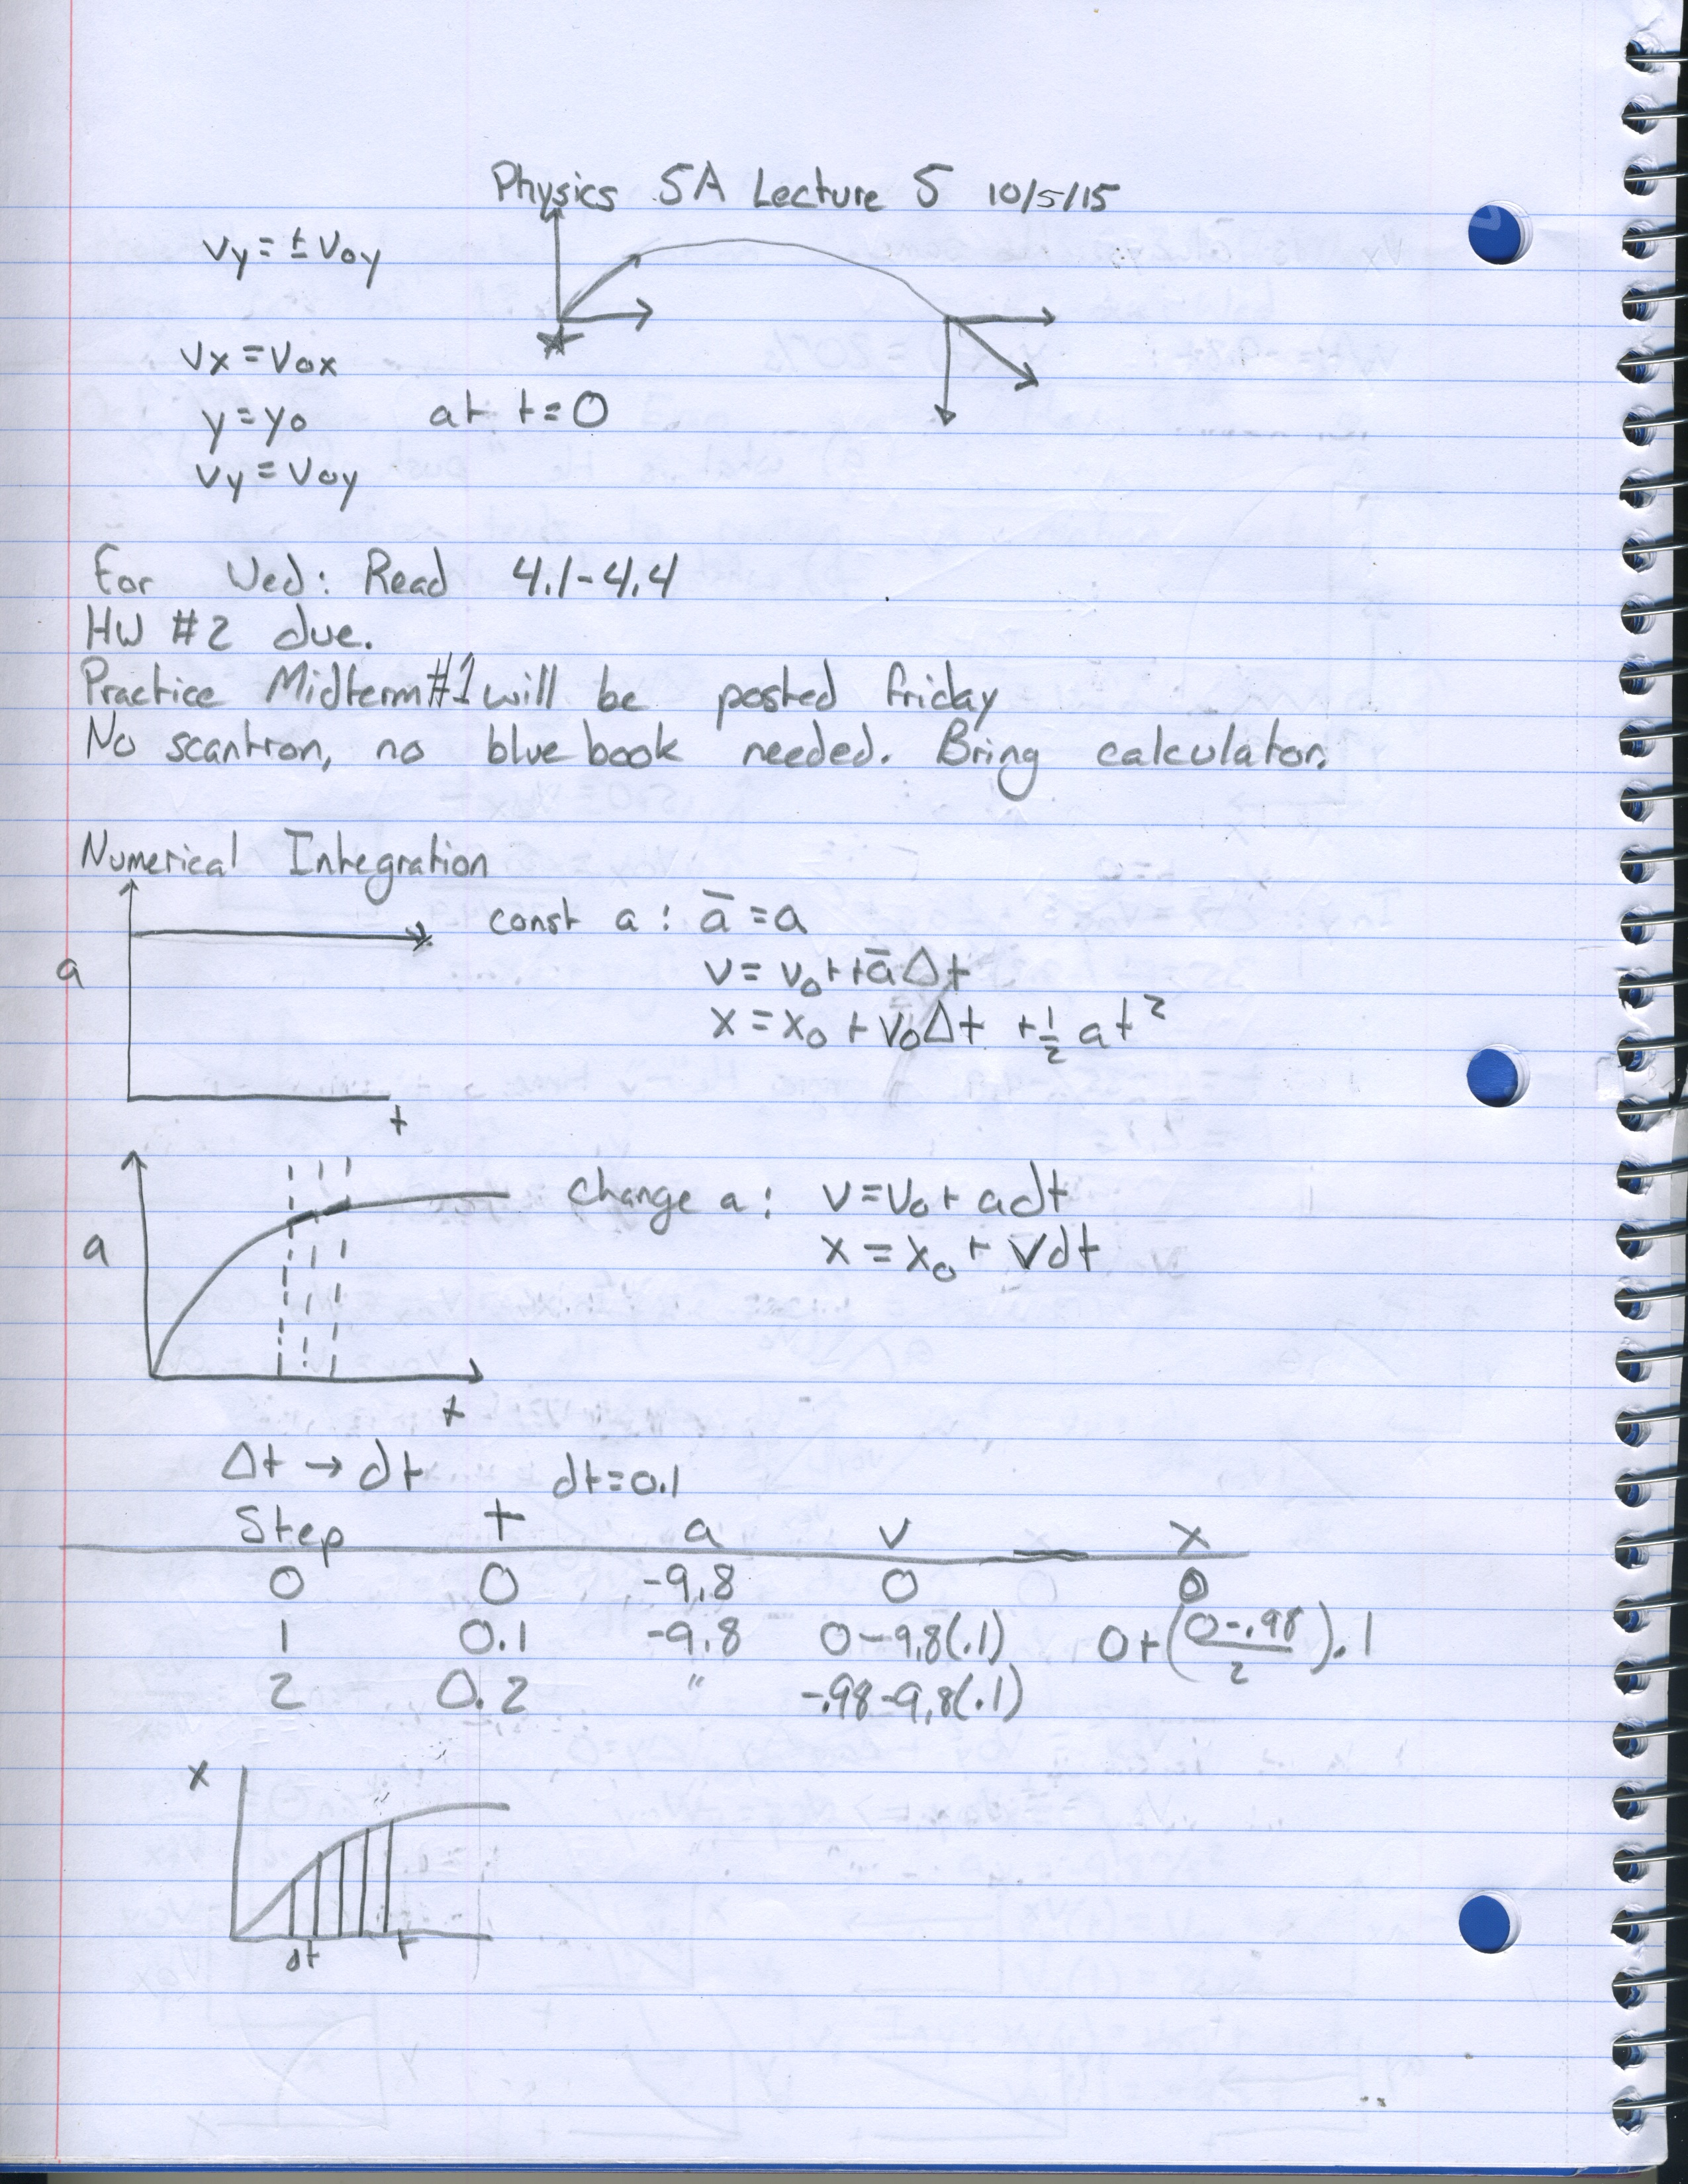 Physics 5A Lecture 5 10/5/15
vy = ± voy
vx = vox
y = yo at t = 0
vy = voy
For Wed: Read 4.1-4.4
HW #2 due.
Practice Midterm #1 will be posted friday
No scantron, no blue book needed. Bring calculator.
Numerical Integration
const a: a̅ = a
v = v₀ + + a̅ Δt
a
x = x₀ + v₀Δt + ½ at²
t
change a: v = v₀ + adt
a
x = x₀ + v̅dt
t
Δt → dt dt = 0.1
Step t a v x
0 0 -9.8 0 0
1 0.1 -9.8 0-9.8(.1) 0+((0-.98)/2).1
2 0.2 " -.98-9.8(.1)
x
dt t